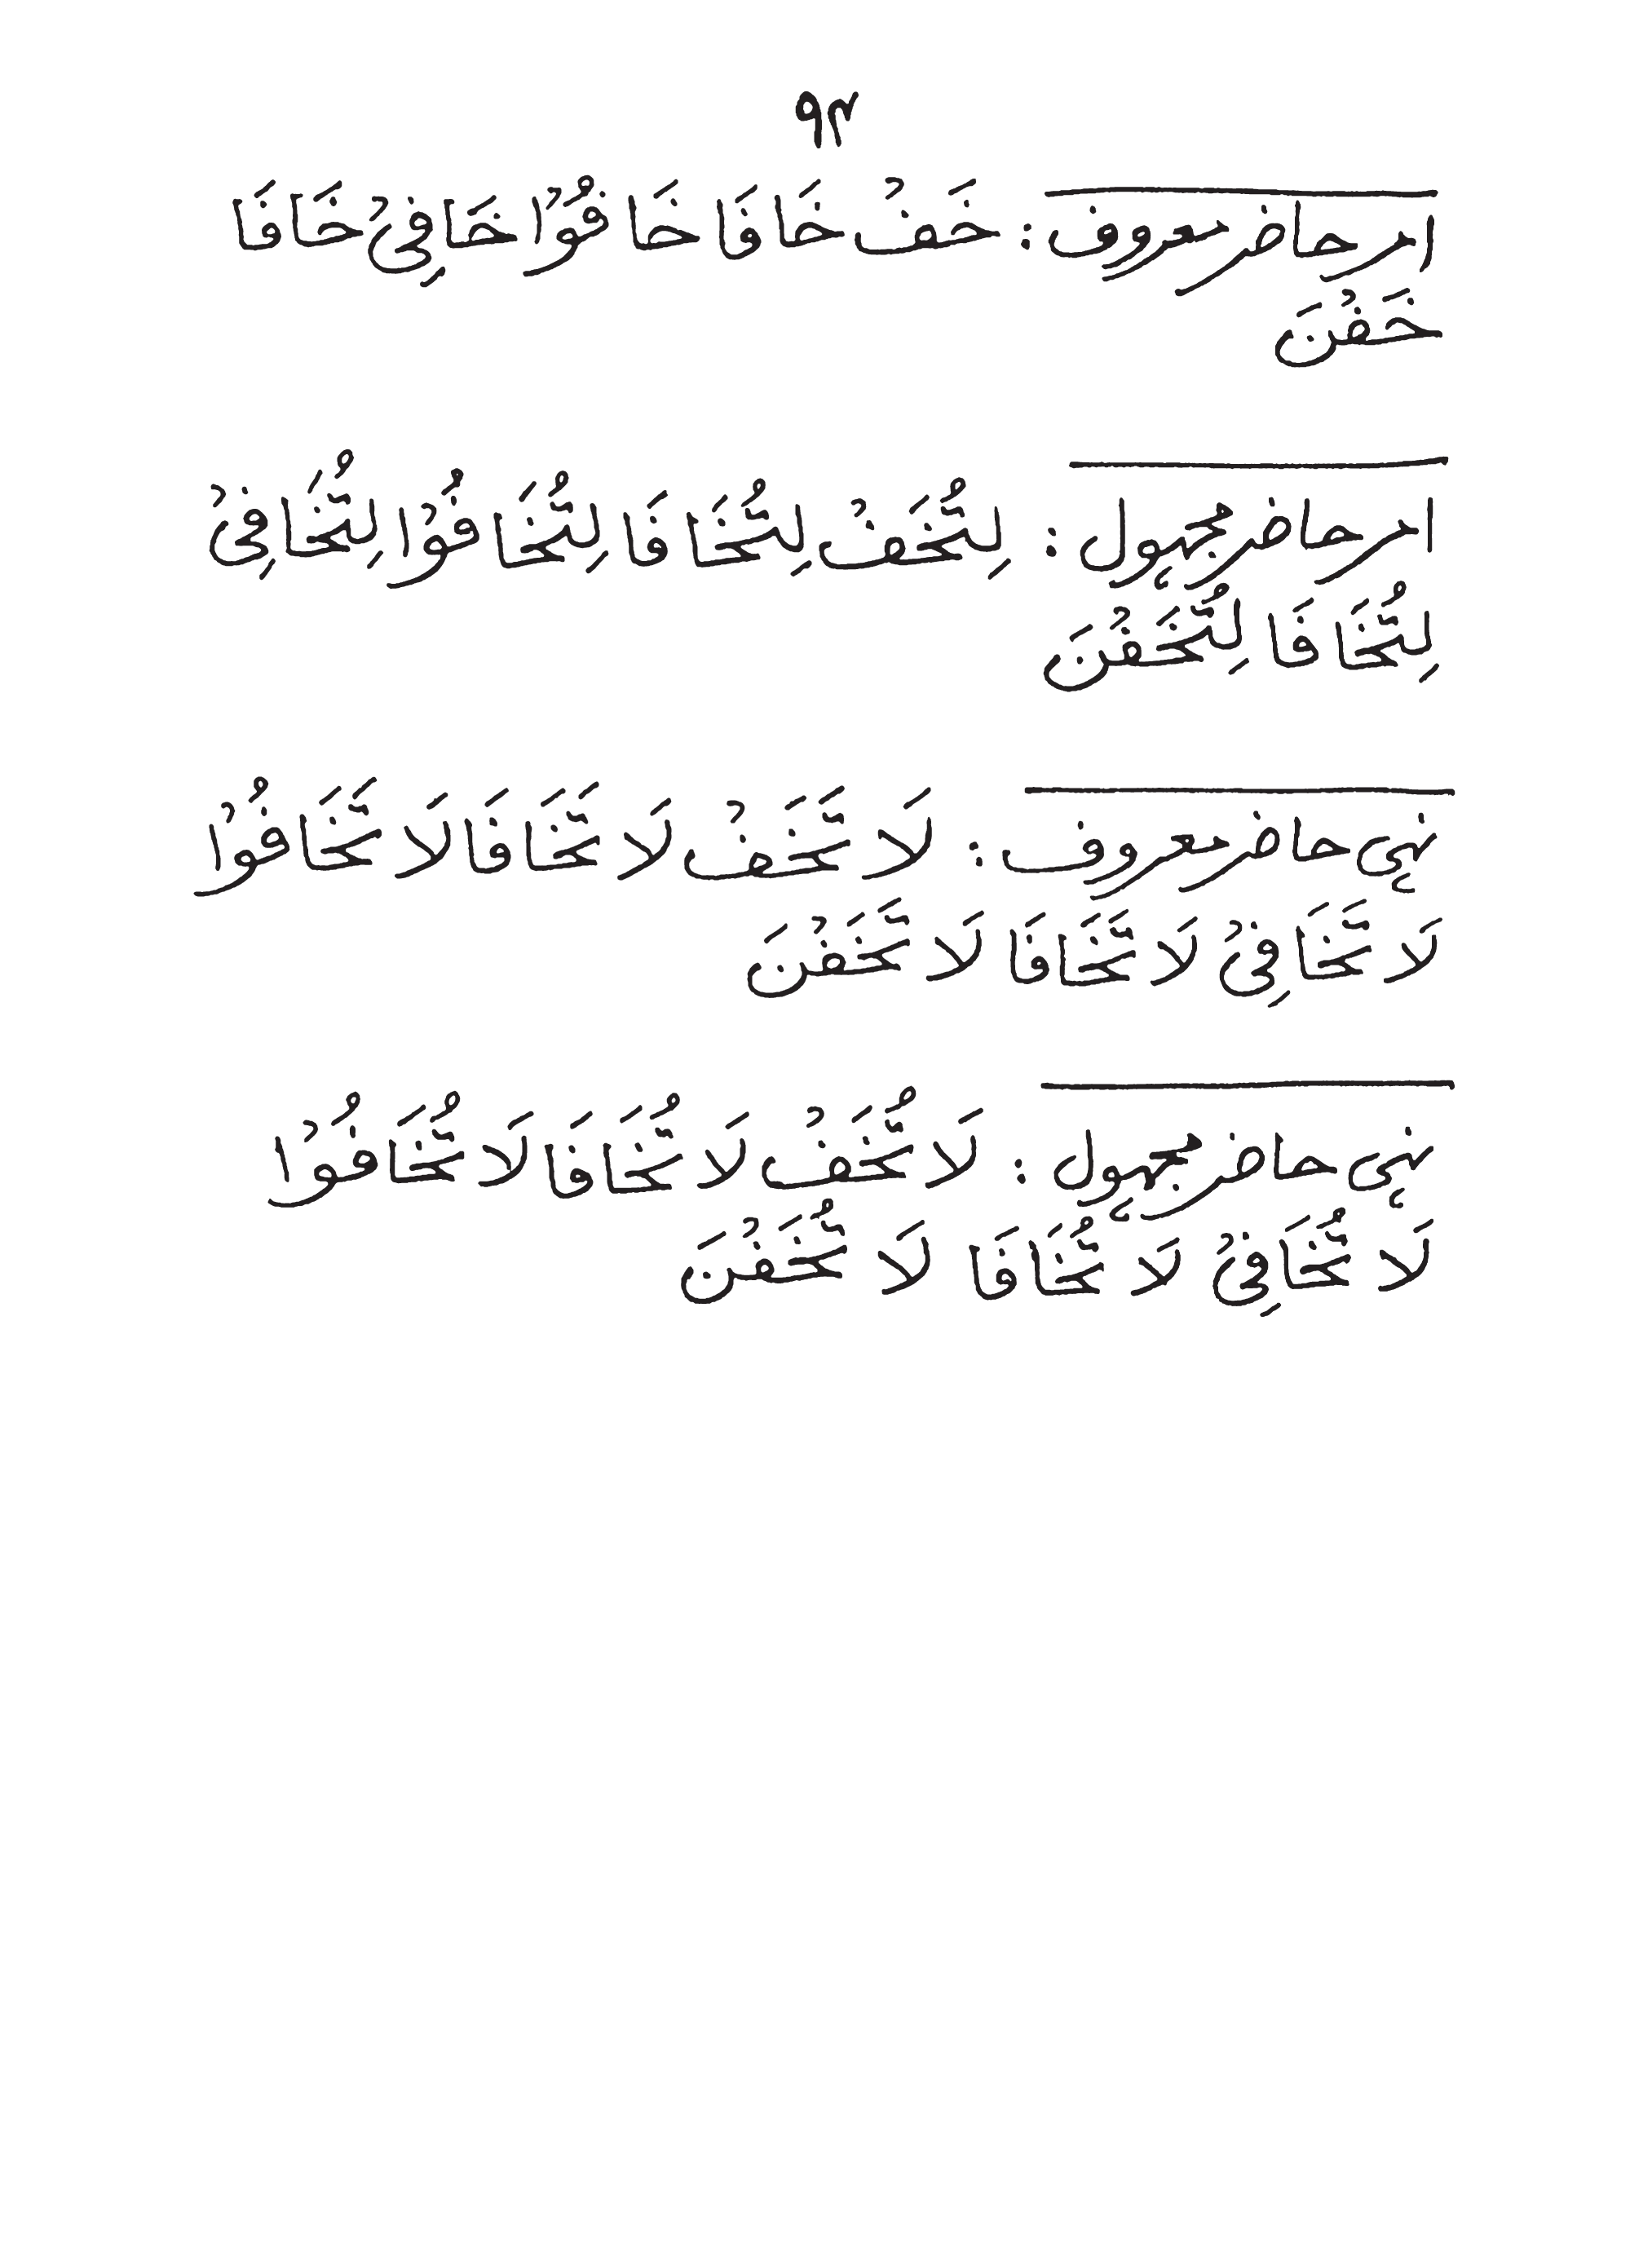 ۹۲
امر حاضر معروف : خَفْ خَافَا خَافُوْا خَافِيْ خَافَا
خَفْنَ
امر حاضر مجہول : لِتُخَفْ لِتُخَافَا لِتُخَافُوْا لِتُخَافِيْ
لِتُخَافَا لِتُخَفْنَ
نہی حاضر معروف : لَا تَخَفْ لَا تَخَافَا لَا تَخَافُوْا
لَا تَخَافِيْ لَا تَخَافَا لَا تَخَفْنَ
نہی حاضر مجہول : لَا تُخَفْ لَا تُخَافَا لَا تُخَافُوْا
لَا تُخَافِيْ لَا تُخَافَا لَا تُخَفْنَ